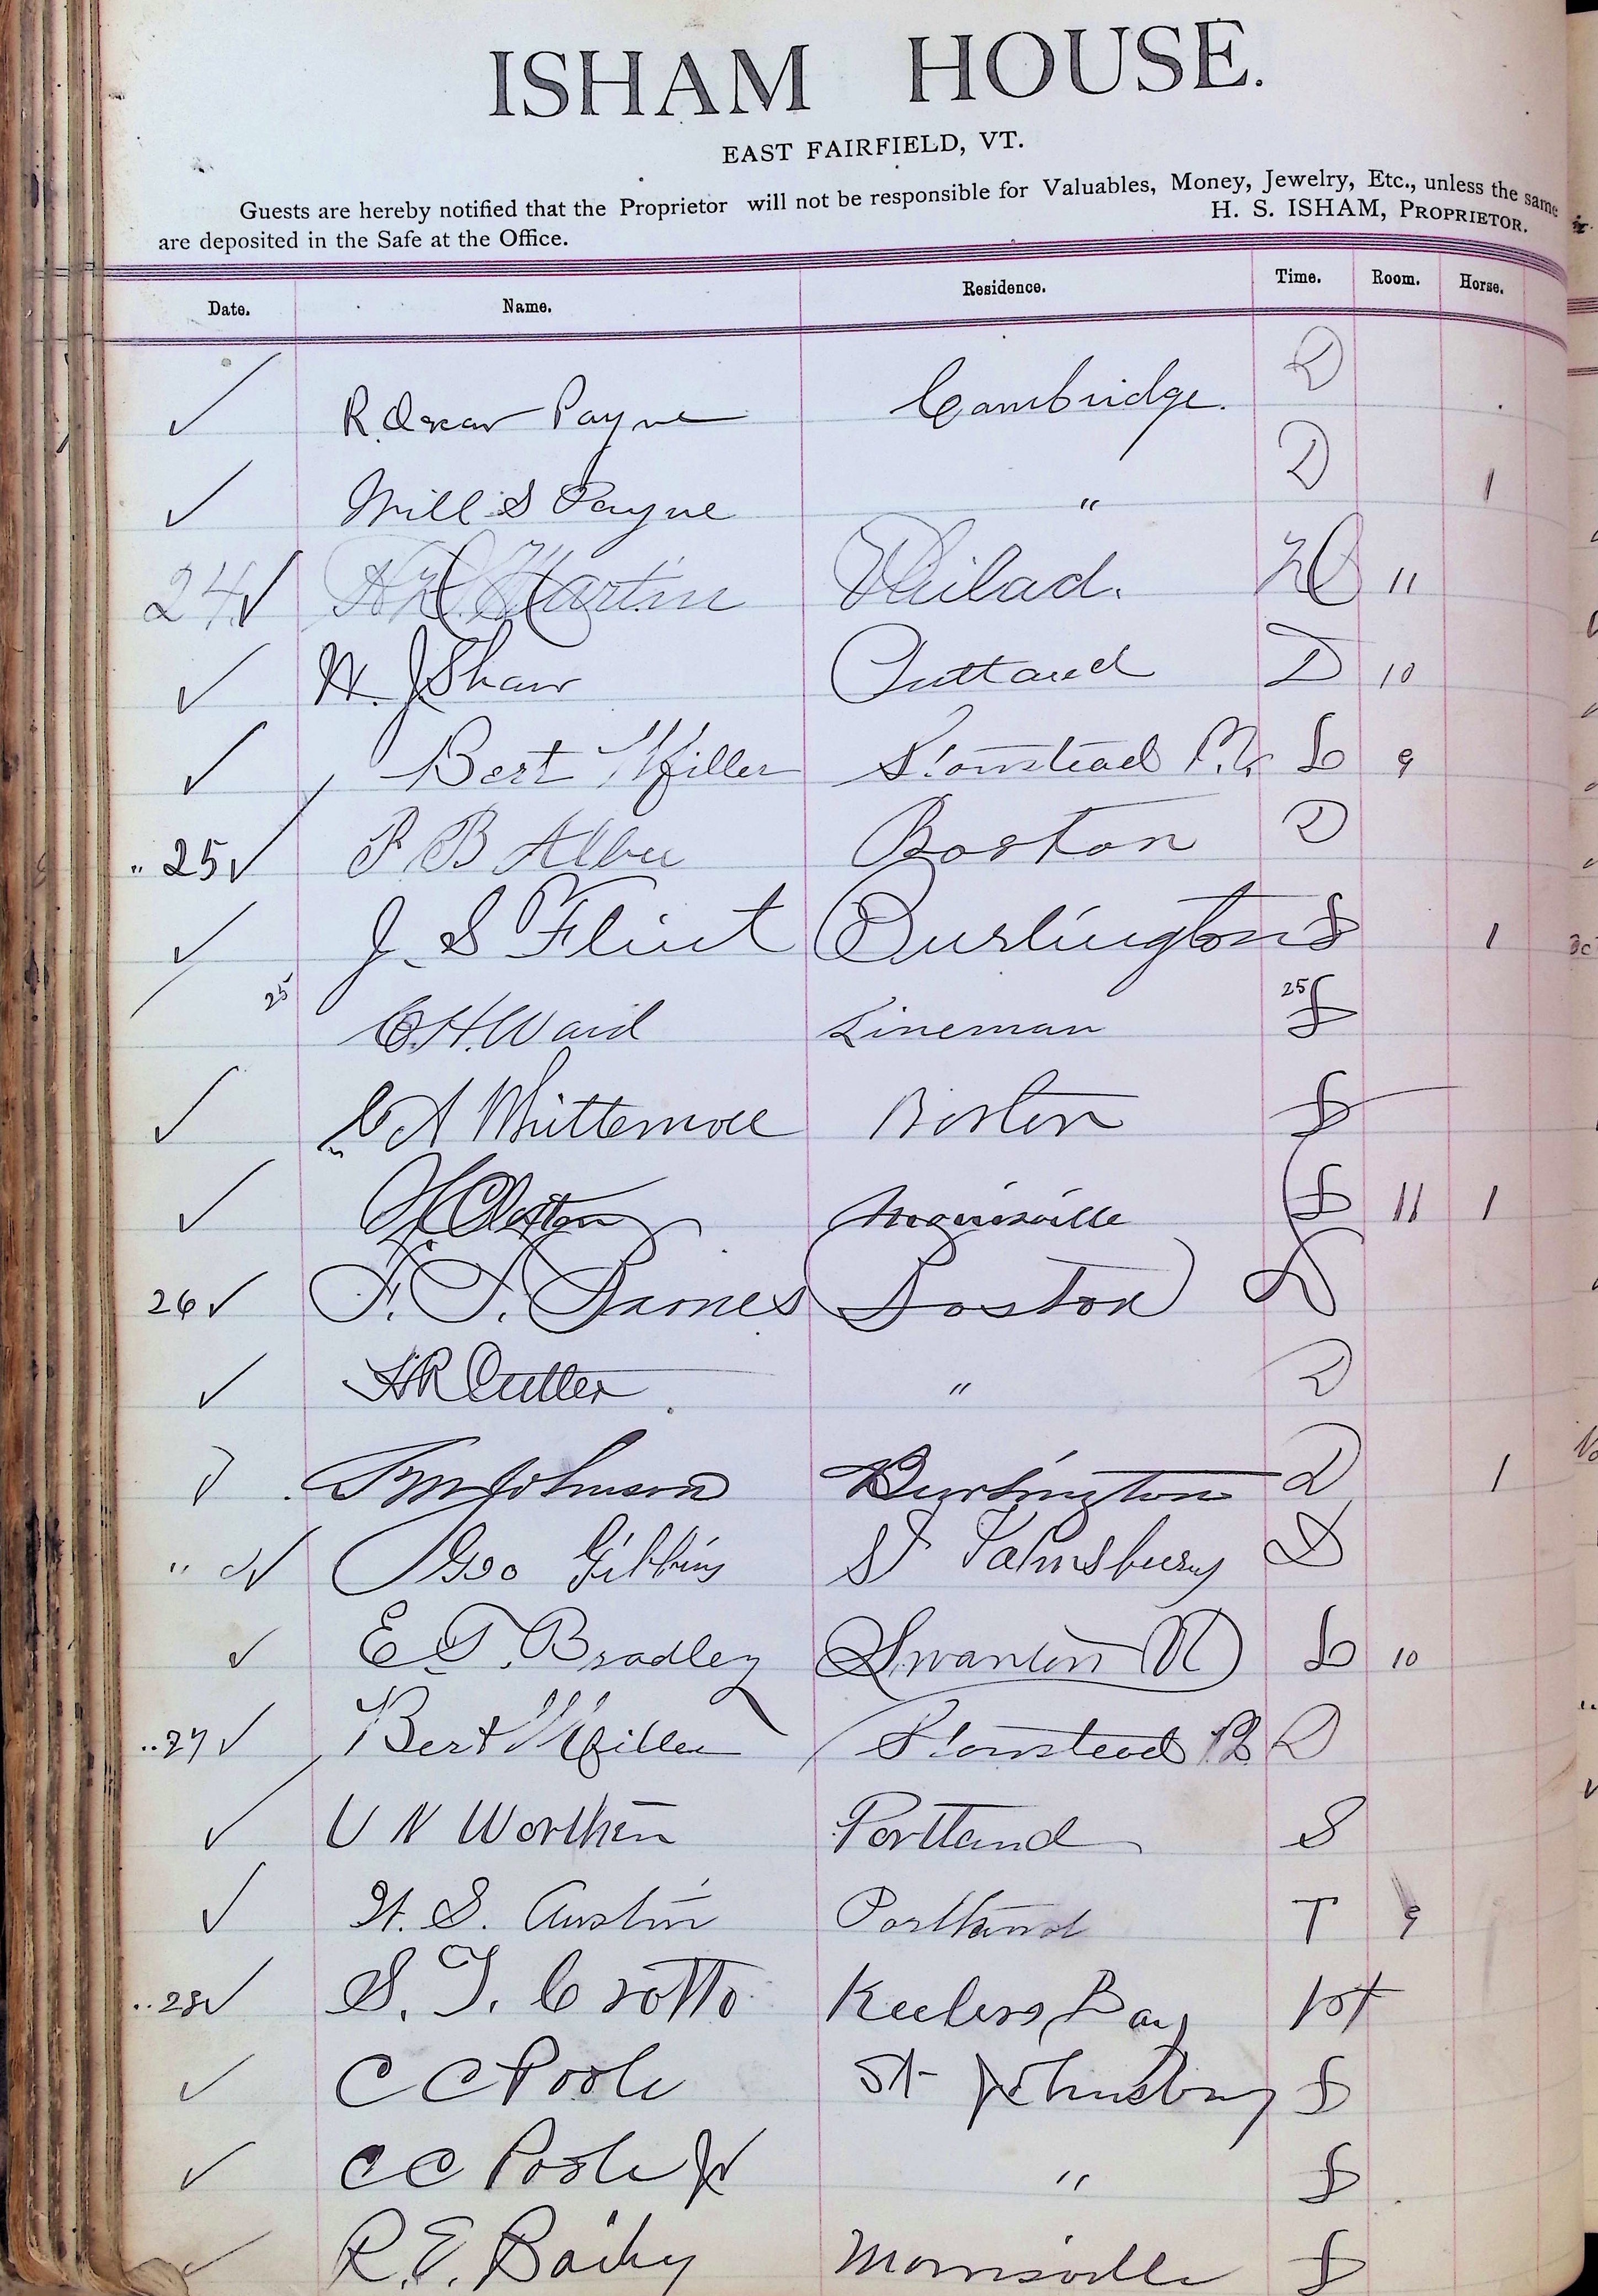 ISHAM HOUSE.
EAST FAIRFIELD, VT.
Guests are hereby notified that the Proprietor will not be responsible for Valuables, Money, Jewelry, Etc., unless the same
are deposited in the Safe at the Office. H. S. ISHAM, PROPRIETOR.
Date. Name. Residence. Time. Room. Horse.
✓ R. Oscar Payne Cambridge. D
✓ Will S Payne " D 1
24 ✓ Martin Philad. 11
✓ J Shaw D 10
✓ Bert Miller Stanstead P.Q. L 9
" 25 ✓ B Boston D
✓ J. S Flint Burlington S 1
25 C.H. Ward Lineman 25
✓ C A Whittemore Boston
✓ Morrisville 11 1
26 ✓ F. S. Barnes Boston D
✓ H R Cutter " D
Johnson Burlington D 1
" ✓ Geo Gibbins St Johnsbury D
✓ E. T. Bradley Swanton Vt L 10
" 27 ✓ Bert Miller Stanstead P.Q. D
✓ U N Worthen Portland S
✓ H. S. Austin Portland T 9
" 28 ✓ S. T. Crotto Keelers Bay
✓ C C Poole St Johnsbury
✓ C C Poole Jr "
✓ R. E. Bailey Morrisville